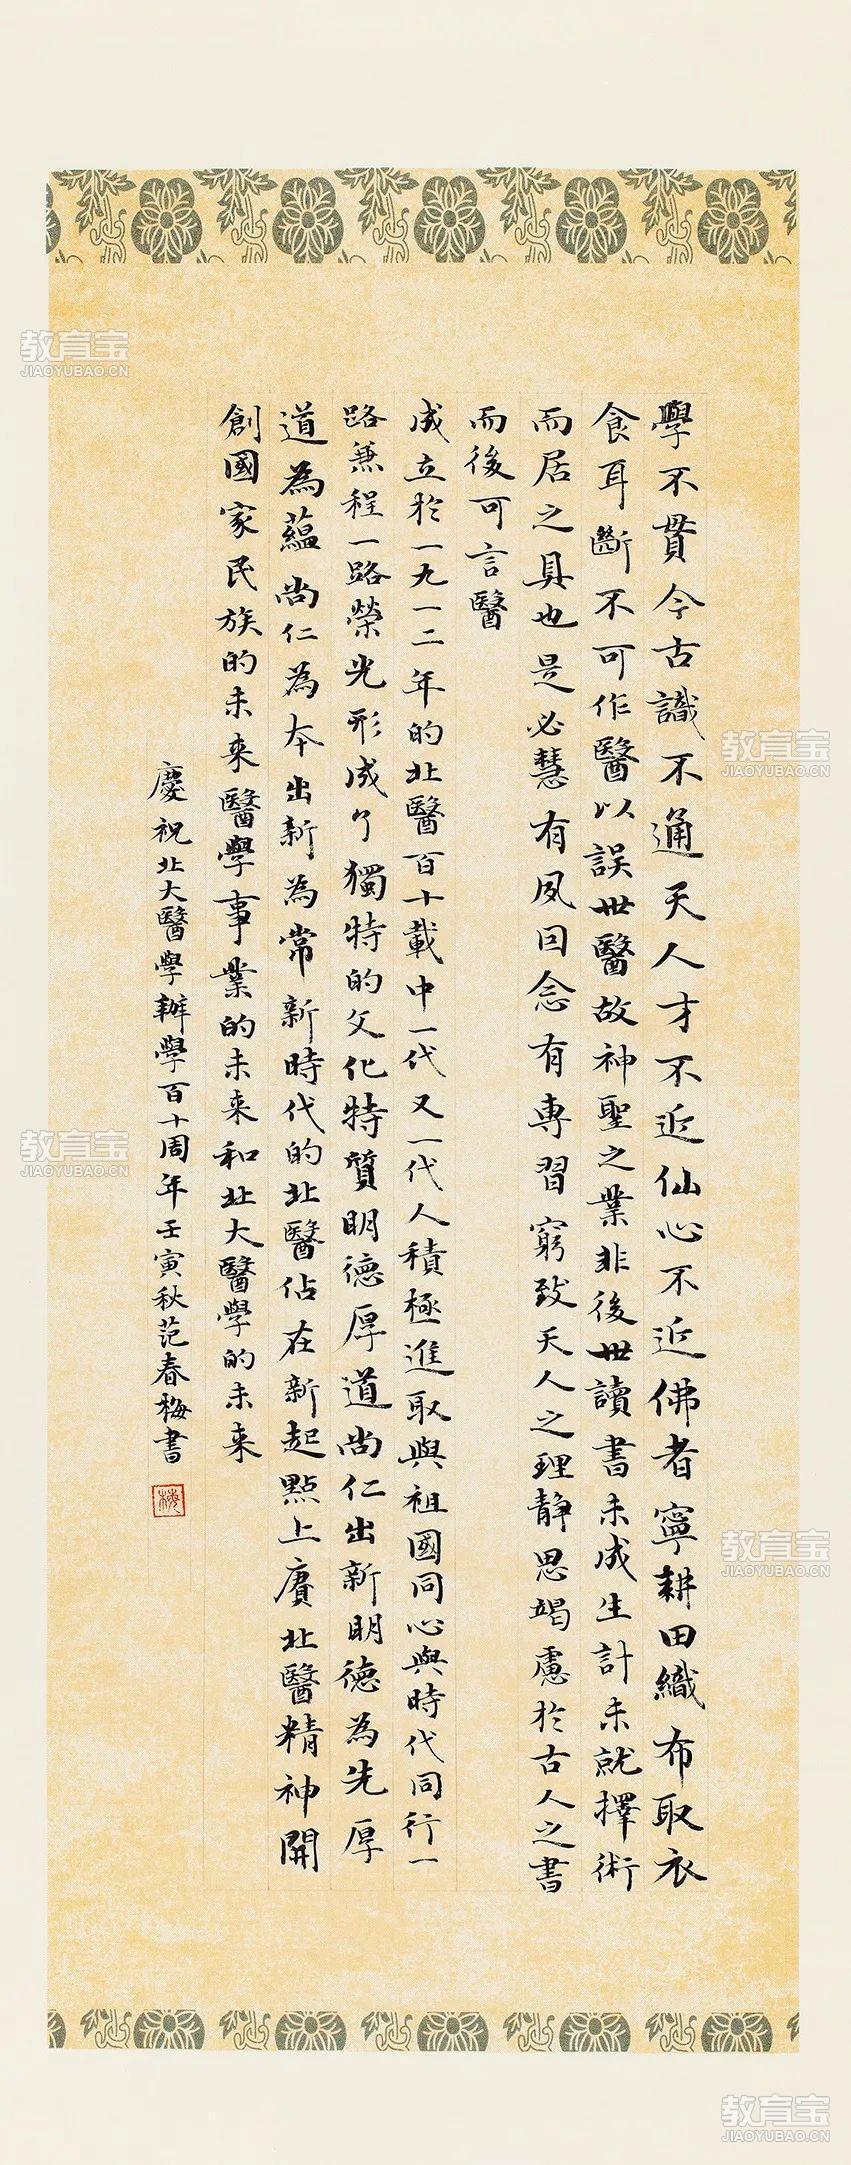 學不貫今古識不通天人才不近仙心不近佛者寧耕田織布取衣
食耳斷不可作醫以誤世醫故神聖之業非後世讀書未成生計未就擇術
而居之具也是必慧有夙因念有專習窮致天人之理靜思竭慮於古人之書
而後可言醫
成立於一九一二年的北醫百十載中一代又一代人積極進取與祖國同心與時代同行一
路兼程一路榮光形成了獨特的文化特質明德厚道尚仁出新明德為先厚
道為蘊尚仁為本出新為常新時代的北醫佔在新起點上賡北醫精神開
創國家民族的未來醫學事業的未來和北大醫學的未來
慶祝北大醫學辦學百十周年壬寅秋范春梅書
梅
教育宝
JIAOYUBAO.CN
教育宝
JIAOYUBAO.CN
教育宝
JIAOYUBAO.CN
教育宝
JIAOYUBAO.CN
教育宝
JIAOYUBAO.CN